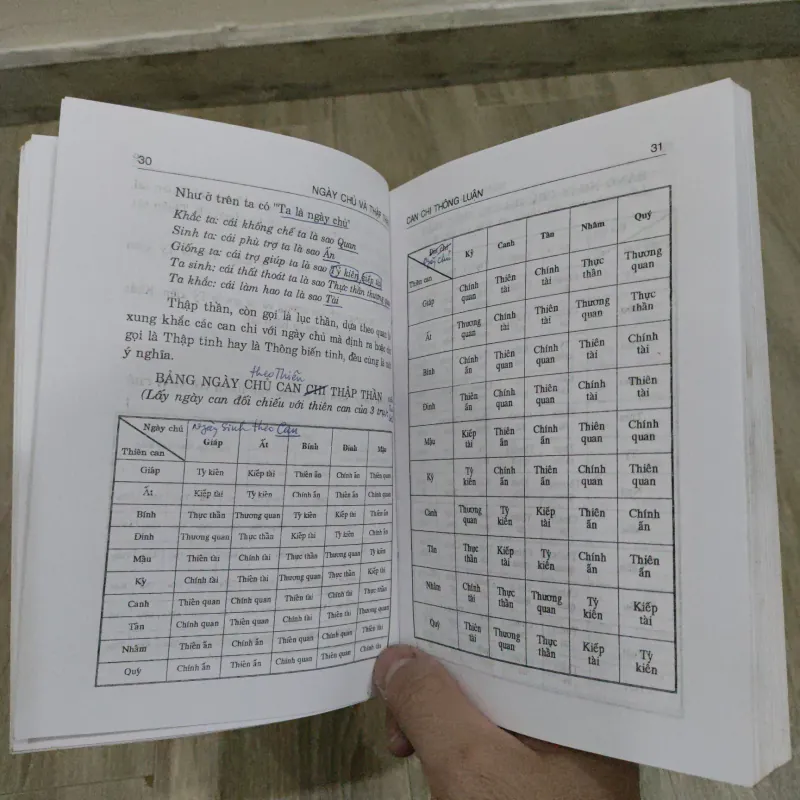 30
NGÀY CHỦ VÀ THẬP
Như ở trên ta có "Ta là ngày chủ"
Khắc ta: cái khống chế ta là sao Quan
Sinh ta: cái phù trợ ta là sao Ấn
Giống ta: cái trợ giúp ta là sao Tỷ kiên, kiếp tài
Ta sinh: cái thất thoát ta là sao Thực thần thương
Ta khắc: cái làm hao ta là sao Tài
Thập thần, còn gọi là lục thần, dựa theo quan
xung khắc các can chi với ngày chủ mà định ra hoặc
gọi là Thập tinh hay là Thông biến tinh, đều cùng là
ý nghĩa.
theo Thiên
BẢNG NGÀY CHỦ CAN CHI THẬP THẦN
(Lấy ngày can đối chiếu với thiên can của 3
Ngày sinh theo Can
Ngày chủ Giáp Ất Bính Đinh Mậu
Thiên can
Giáp Tỷ kiên Kiếp tài Thiên ấn Chính ấn Thiên quan
Ất Kiếp tài Tỷ kiên Chính ấn Thiên ấn Chính quan
Bính Thực thần Thương quan Tỷ kiên Kiếp tài Thiên ấn
Đinh Thương quan Thực thần Kiếp tài Tỷ kiên Chính ấn
Mậu Thiên tài Chính tài Thực thần Thương quan Tỷ kiên
Kỷ Chính tài Thiên tài Thương quan Thực thần Kiếp tài
Canh Thiên quan Chính quan Thiên tài Chính tài Thực thần
Tân Chính quan Thiên quan Chính tài Thiên tài Thương quan
Nhâm Thiên ấn Chính ấn Thiên quan Chính quan Thiên tài
Quý Chính ấn Thiên ấn Chính quan Thiên quan Chính tài
31
CAN CHI THÔNG LUẬN
Ngày chủ Kỷ Canh Tân Nhâm Quý
Thiên can
Giáp Chính quan Thiên tài Chính tài Thực thần Thương quan
Ất Thương quan Chính tài Thiên tài Thương quan Thực thần
Bính Chính ấn Thiên quan Chính quan Thiên tài Chính tài
Đinh Thiên ấn Chính quan Thiên quan Chính tài Thiên tài
Mậu Kiếp tài Thiên ấn Chính ấn Thiên quan Chính quan
Kỷ Tỷ kiến Chính ấn Thiên ấn Chính quan Thiên quan
Canh Thương quan Tỷ kiến Kiếp tài Thiên ấn Chính ấn
Tân Thực thần Kiếp tài Tỷ kiến Chính ấn Thiên ấn
Nhâm Chính tài Thực thần Thương quan Tỷ kiến Kiếp tài
Quý Thiên tài Thương quan Thực thần Kiếp tài Tỷ kiến